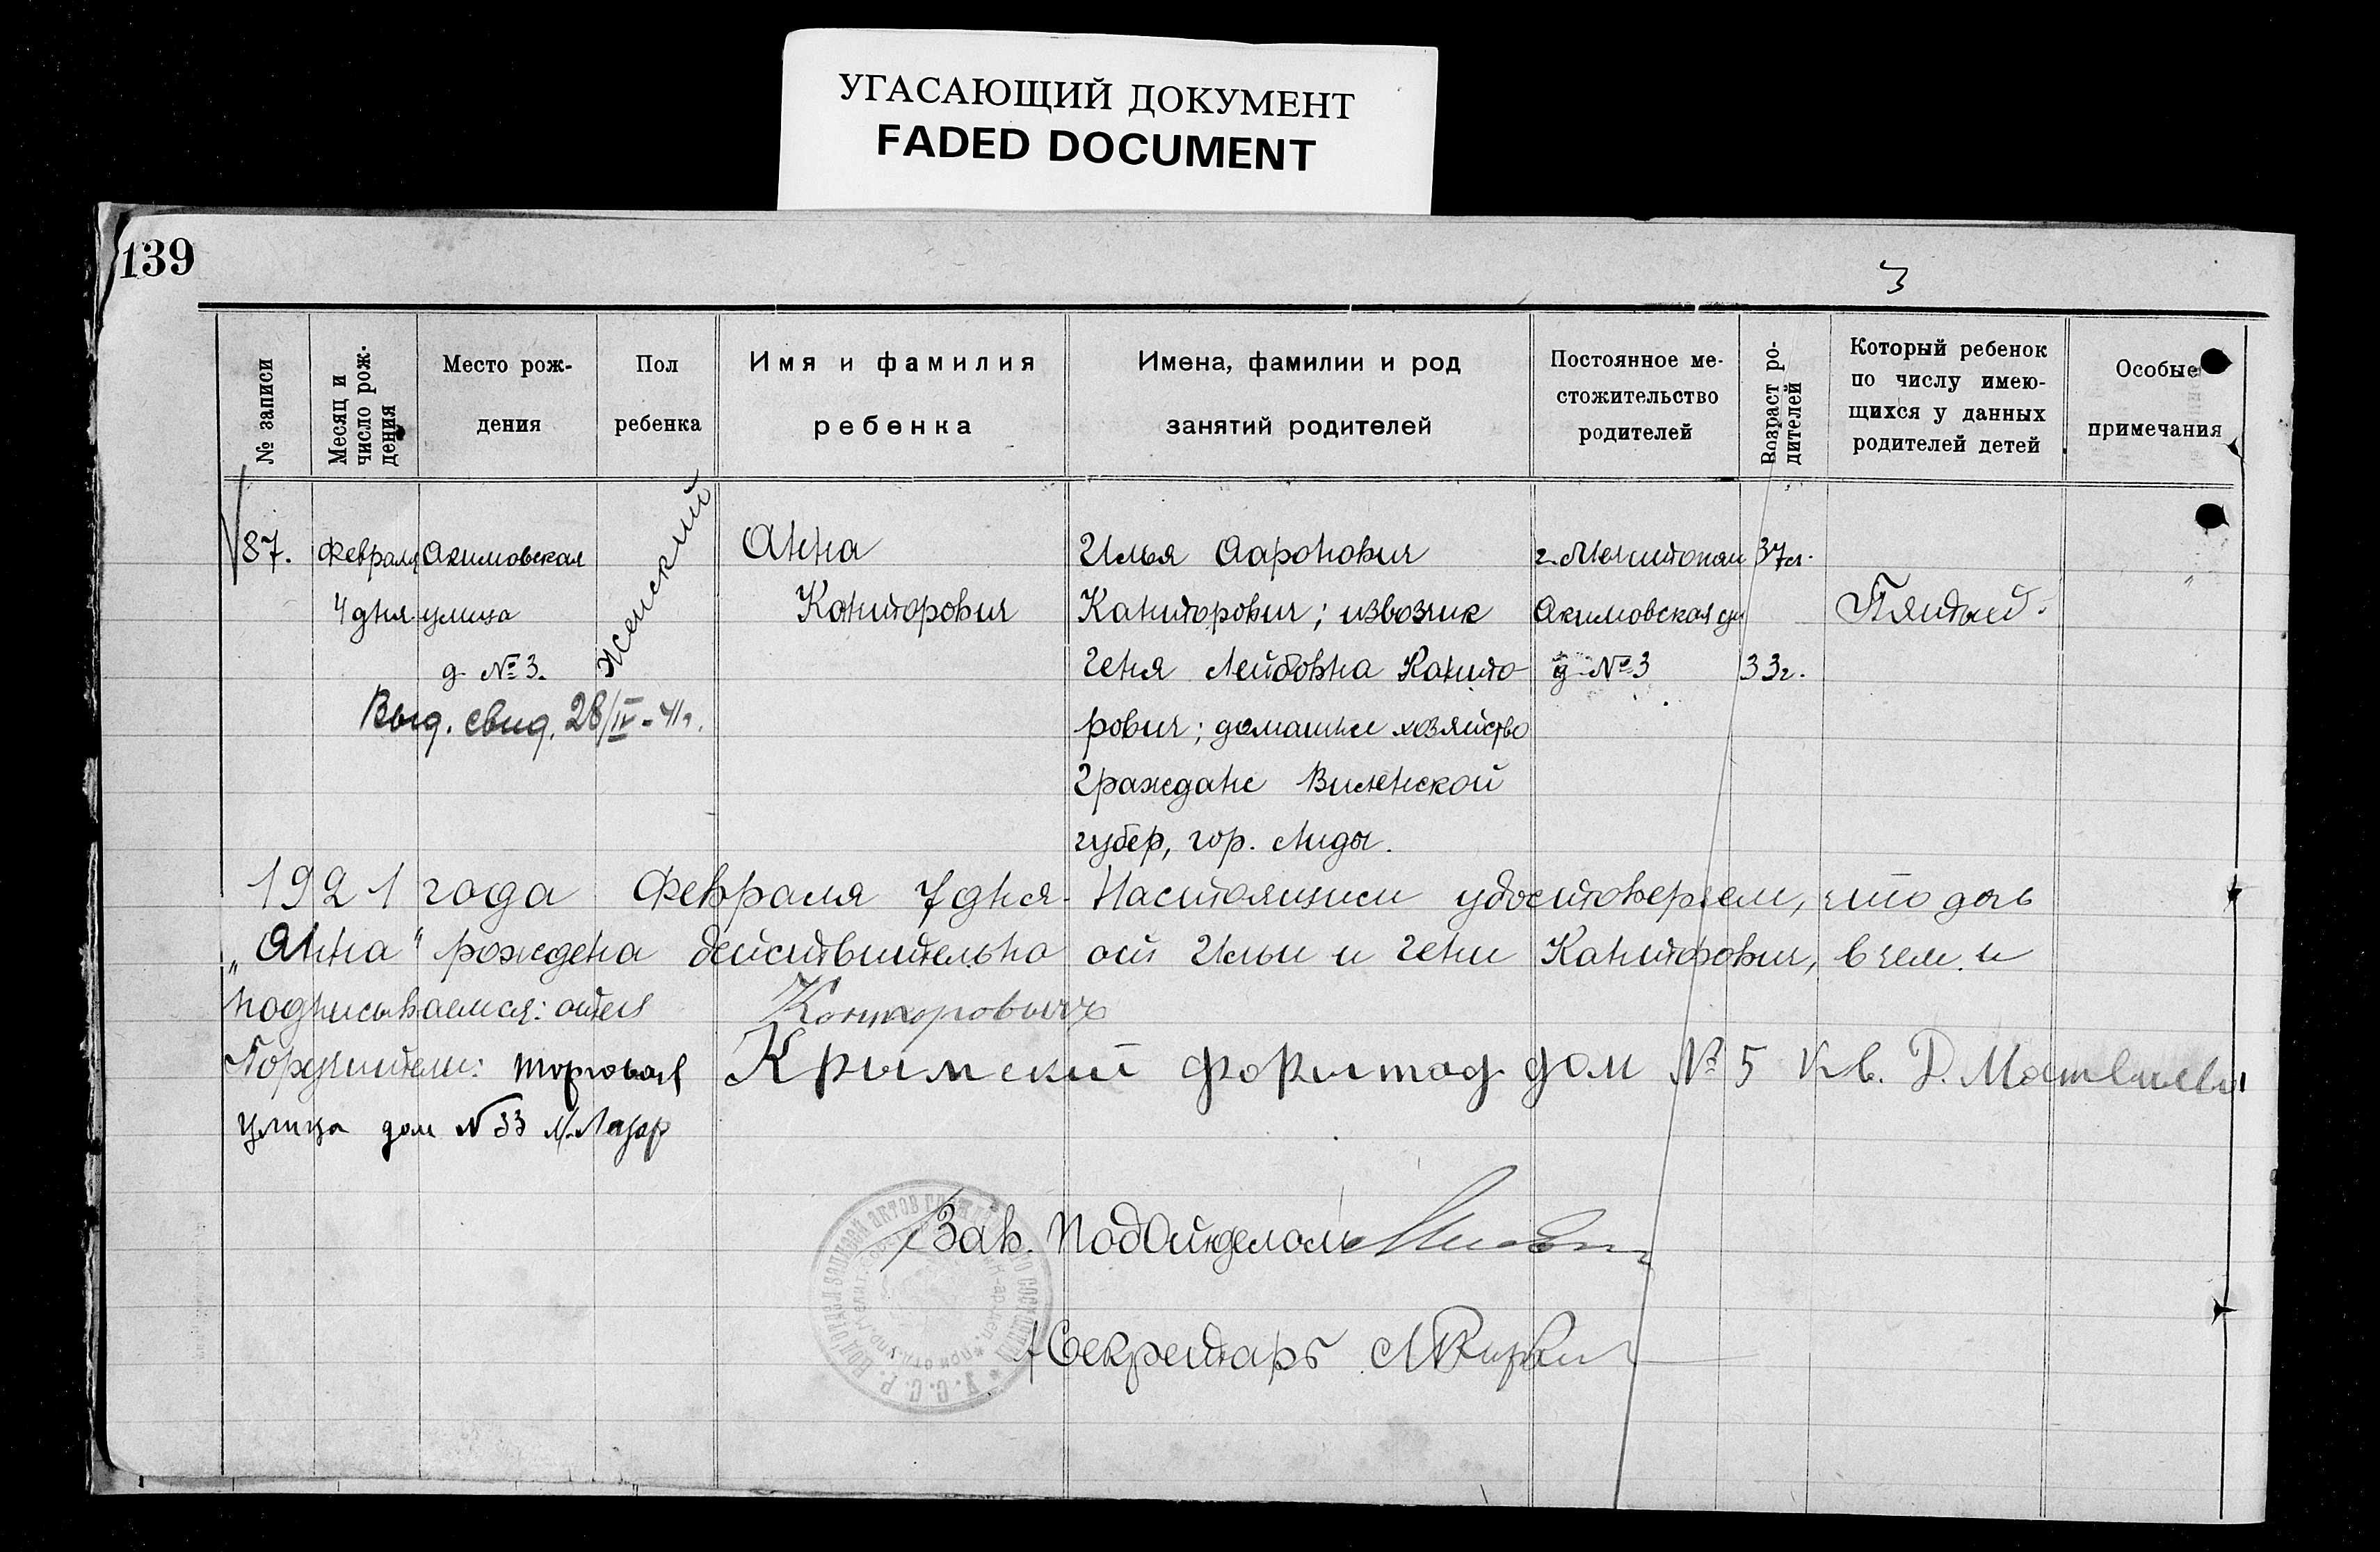 УГАСАЮЩИЙ ДОКУМЕНТ
FADED DOCUMENT
139
3
№ записи
Месяц и число рож-дения
Место рож-
дения
Пол
ребенка
Имя и фамилия
ребенка
Имена, фамилии и род
занятий родителей
Постоянное ме-
стожительство
родителей
Возраст ро-
дителей
Который ребенок
по числу имею-
щихся у данных
родителей детей
Особые
примечания
87.
Февраля
4 дня
Акимовская
улица
д. №3.
Женский
Анна
Канторович
Илья Ааронович
Канторович; извозчик
Геня Лейбовна Канто-
рович; домашнее хозяйство
Граждане Виленской
губер, гор. Лиды.
г. Мелитополь
Акимовская ул
д. №3
37 л.
33 г.
Пятый.
Выд. свид. 28/IV-41 г.
1921 года Февраля 7 дня. Настоящим удостоверяем, что дочь
„Анна" рождена действительно от Ильи и Гени Канторович, в чем и
подписываемся: отец Канторович
Поручители: Торговая Крымский форштад дом № 5 Кв. Д. Матвеева
улица дом №33 М. Лазар
Зав. ПодОтделом
Секретарь